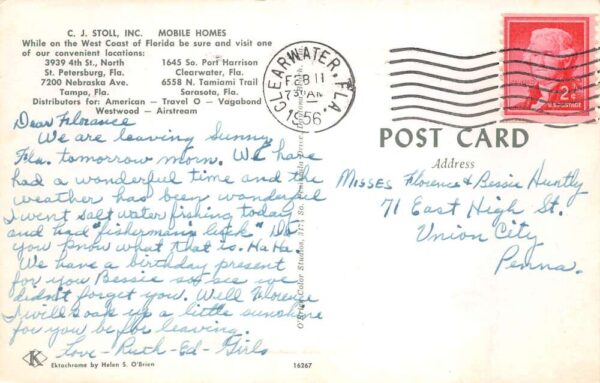 C. J. STOLL, INC. MOBILE HOMES
While on the West Coast of Florida be sure and visit one
of our convenient locations:
3939 4th St., North 1645 So. Fort Harrison
St. Petersburg, Fla. Clearwater, Fla.
7200 Nebraska Ave. 6558 N. Tamiami Trail
Tampa, Fla. Sarasota, Fla.
Distributors for: American — Travel O — Vagabond
Westwood — Airstream
CLEARWATER, FLA.
FEB 11
730 AM
1956
2¢
U.S. POSTAGE
POST CARD
Address
Dear Florance
We are leaving Sunny
Fla. tomorrow morn. We have
had a wonderful time and the
weather has been wonderful
I went salt water fishing today
and had "fisherman's luck" Do
you know what that is. Ha Ha.
We have a birthday present
for you Bessie so see we
didn't forget you. Well Florence
I will soak up a little sunshine
for you before leaving.
Love - Ruth - Ed - Girls
Misses Florence & Bessie Huntly
71 East High St.
Union City
Penna.
O'Brien Color Studios, 317
K
Ektachrome by Helen S. O'Brien
16267